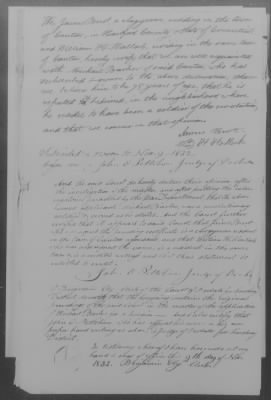 We James Burt, a clergyman residing in the town
of Canton, in Hartford County & State of Connecticut
and William H. Hallock, residing in the same town
of Canton hereby certify that we are well acquainted
with Michael Barber of said Canton who has
subscribed & sworn to the above declaration, that
we believe him to be 78 years of age, that he is
reputed & believed, in the neighborhood where
he resides to have been a soldier of the revolution
and that we concur in that opinion
James Burt
Wm H Hallock
Subscribed & sworn to Nov. 9 1832.
before me John O. Pettibone Judge of Probate
And the said Court do hereby declare their opinion after
the investigation of the matter, and after putting the
interrogatories prescribed by the War Department, that the above
named applicant was a revolutionary
soldier & served as he states. And the Court further
certifies that it appears to said Court that James Burt
who signed the preceding certificate is a clergyman resident
in the town of Canton aforesaid and that William H. Hallock
who also signed the same, is a resident in the same
town & is a credible witness and that their statement is
entitled to credit.
John O. Pettibone Judge of Probate
I Benjamin Ely Clerk of the Court of Probate in Simsbury
District certify that the foregoing contains the original
proceedings of the said Court in the matter of the application
of Michael Barber for a pension and I also certify that
John O. Pettibone
District
In testimony whereof I have hereunto set my
hand & seal of office the 9th day of Nov.
1832. Benjamin Ely Clerk